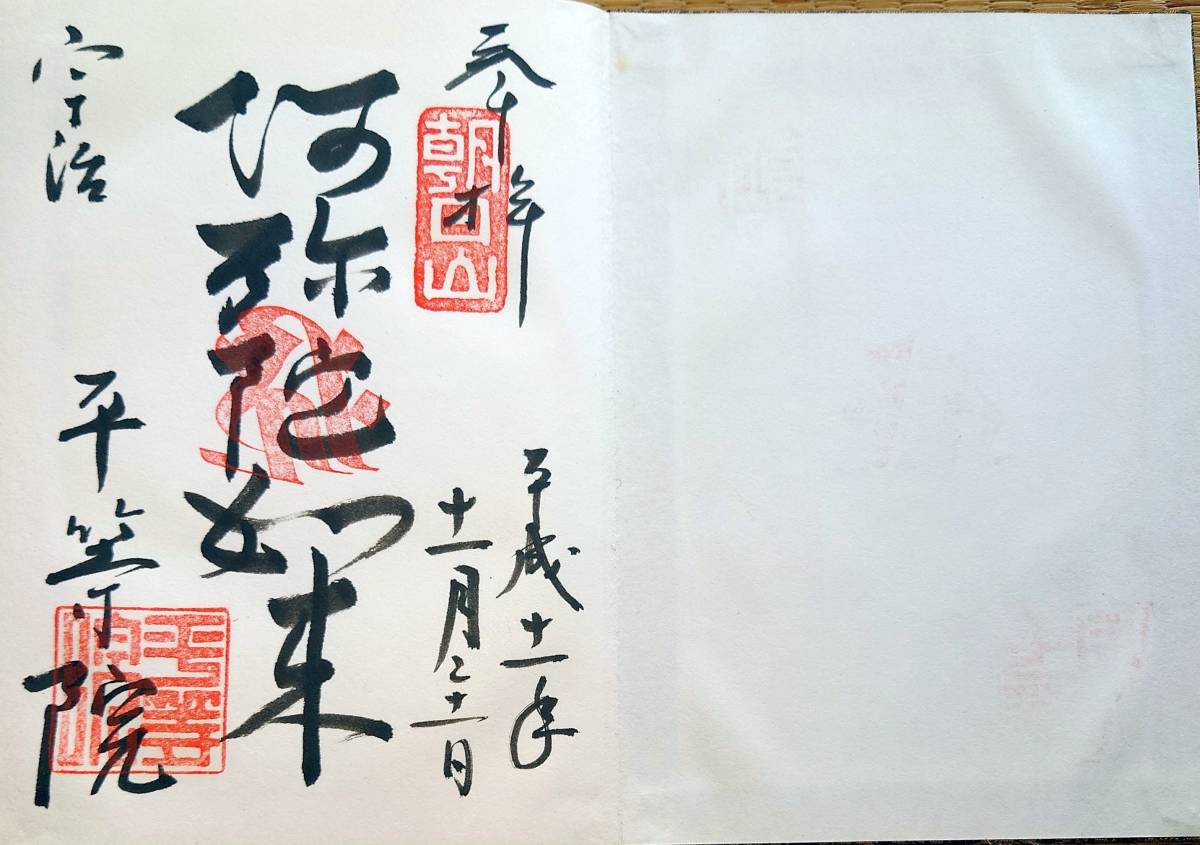 奉拝
朝日山
平成十一年
十一月二十一日
阿弥陀如来
宇治
平等院
平等